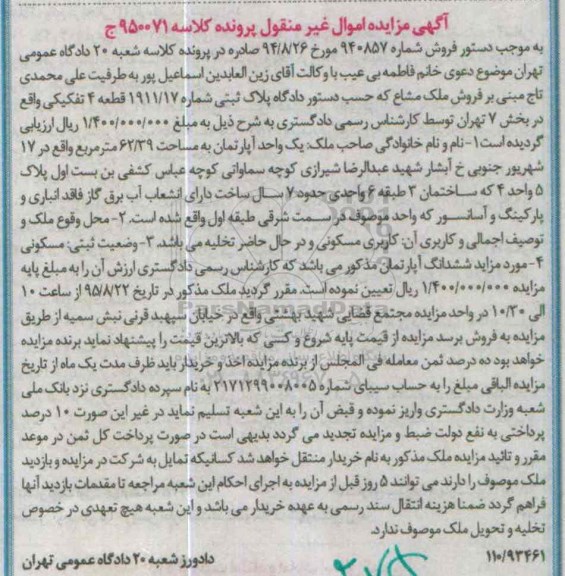 آگهی مزایده اموال غیر منقول پرونده کلاسه ۹۵۰۰۷۱ ج
به موجب دستور فروش شماره ۹۴۰۸۵۷ مورخ ۹۴/۸/۲۶ صادره در پرونده کلاسه شعبه ۲۰ دادگاه عمومی
تهران موضوع دعوی خانم فاطمه بی عیب با وکالت آقای زین العابدین اسماعیل پور به طرفیت علی محمدی
تاج مبنی بر فروش ملک مشاع که حسب دستور دادگاه پلاک ثبتی شماره ۱۹۱۱/۱۷ قطعه ۴ تفکیکی واقع
در بخش ۷ تهران توسط کارشناس رسمی دادگستری به شرح ذیل به مبلغ ۱/۴۰۰/۰۰۰/۰۰۰ ریال ارزیابی
گردیده است ۱- نام و نام خانوادگی صاحب ملک: یک واحد آپارتمان به مساحت ۶۲/۳۹ مترمربع واقع در ۱۷
شهریور جنوبی خ آبشار شهید عبدالرضا شیرازی کوچه سماواتی کوچه عباس کشفی بن بست اول پلاک
۵ واحد ۴ که ساختمان ۳ طبقه ۶ واحدی حدود ۷ سال ساخت دارای انشعاب آب برق گاز فاقد انباری و
پارکینگ و آسانسور که واحد موصوف در سمت شرقی طبقه اول واقع شده است. ۲- محل وقوع ملک و
توصیف اجمالی و کاربری آن: کاربری مسکونی و در حال حاضر تخلیه می باشد. ۳- وضعیت ثبتی: مسکونی
۴- مورد مزاید ششدانگ آپارتمان مذکور می باشد که کارشناس رسمی دادگستری ارزش آن را به مبلغ پایه
مزایده ۱/۴۰۰/۰۰۰/۰۰۰ ریال تعیین نموده است. مقرر گردید ملک مذکور در تاریخ ۹۵/۸/۲۲ از ساعت ۱۰
الی ۱۰/۳۰ در واحد مزایده مجتمع قضایی شهید بهشتی واقع در خیابان سپهبد قرنی نبش سمیه از طریق
مزایده به فروش برسد مزایده از قیمت پایه شروع و کسی که بالاترین قیمت را پیشنهاد نماید برنده مزایده
خواهد بود ده درصد ثمن معامله فی المجلس از برنده مزایده اخذ و خریدار باید ظرف مدت یک ماه از تاریخ
مزایده الباقی مبلغ را به حساب سیبای شماره ۲۱۷۱۲۹۹۰۰۸۰۰۵ به نام سپرده دادگستری نزد بانک ملی
شعبه وزارت دادگستری واریز نموده و قبض آن را به این شعبه تسلیم نماید در غیر این صورت ۱۰ درصد
پرداختی به نفع دولت ضبط و مزایده تجدید می گردد بدیهی است در صورت پرداخت کل ثمن در موعد
مقرر و تائید مزایده ملک مذکور به نام خریدار منتقل خواهد شد کسانیکه تمایل به شرکت در مزایده و بازدید
ملک موصوف را دارند می توانند ۵ روز قبل از مزایده به اجرای احکام این شعبه مراجعه تا مقدمات بازدید آنها
فراهم گردد ضمنا هزینه انتقال سند رسمی به عهده خریدار می باشد و این شعبه هیچ تعهدی در خصوص
تخلیه و تحویل ملک موصوف ندارد.
۱۱۰/۹۳۴۶۱ دادورز شعبه ۲۰ دادگاه عمومی تهران